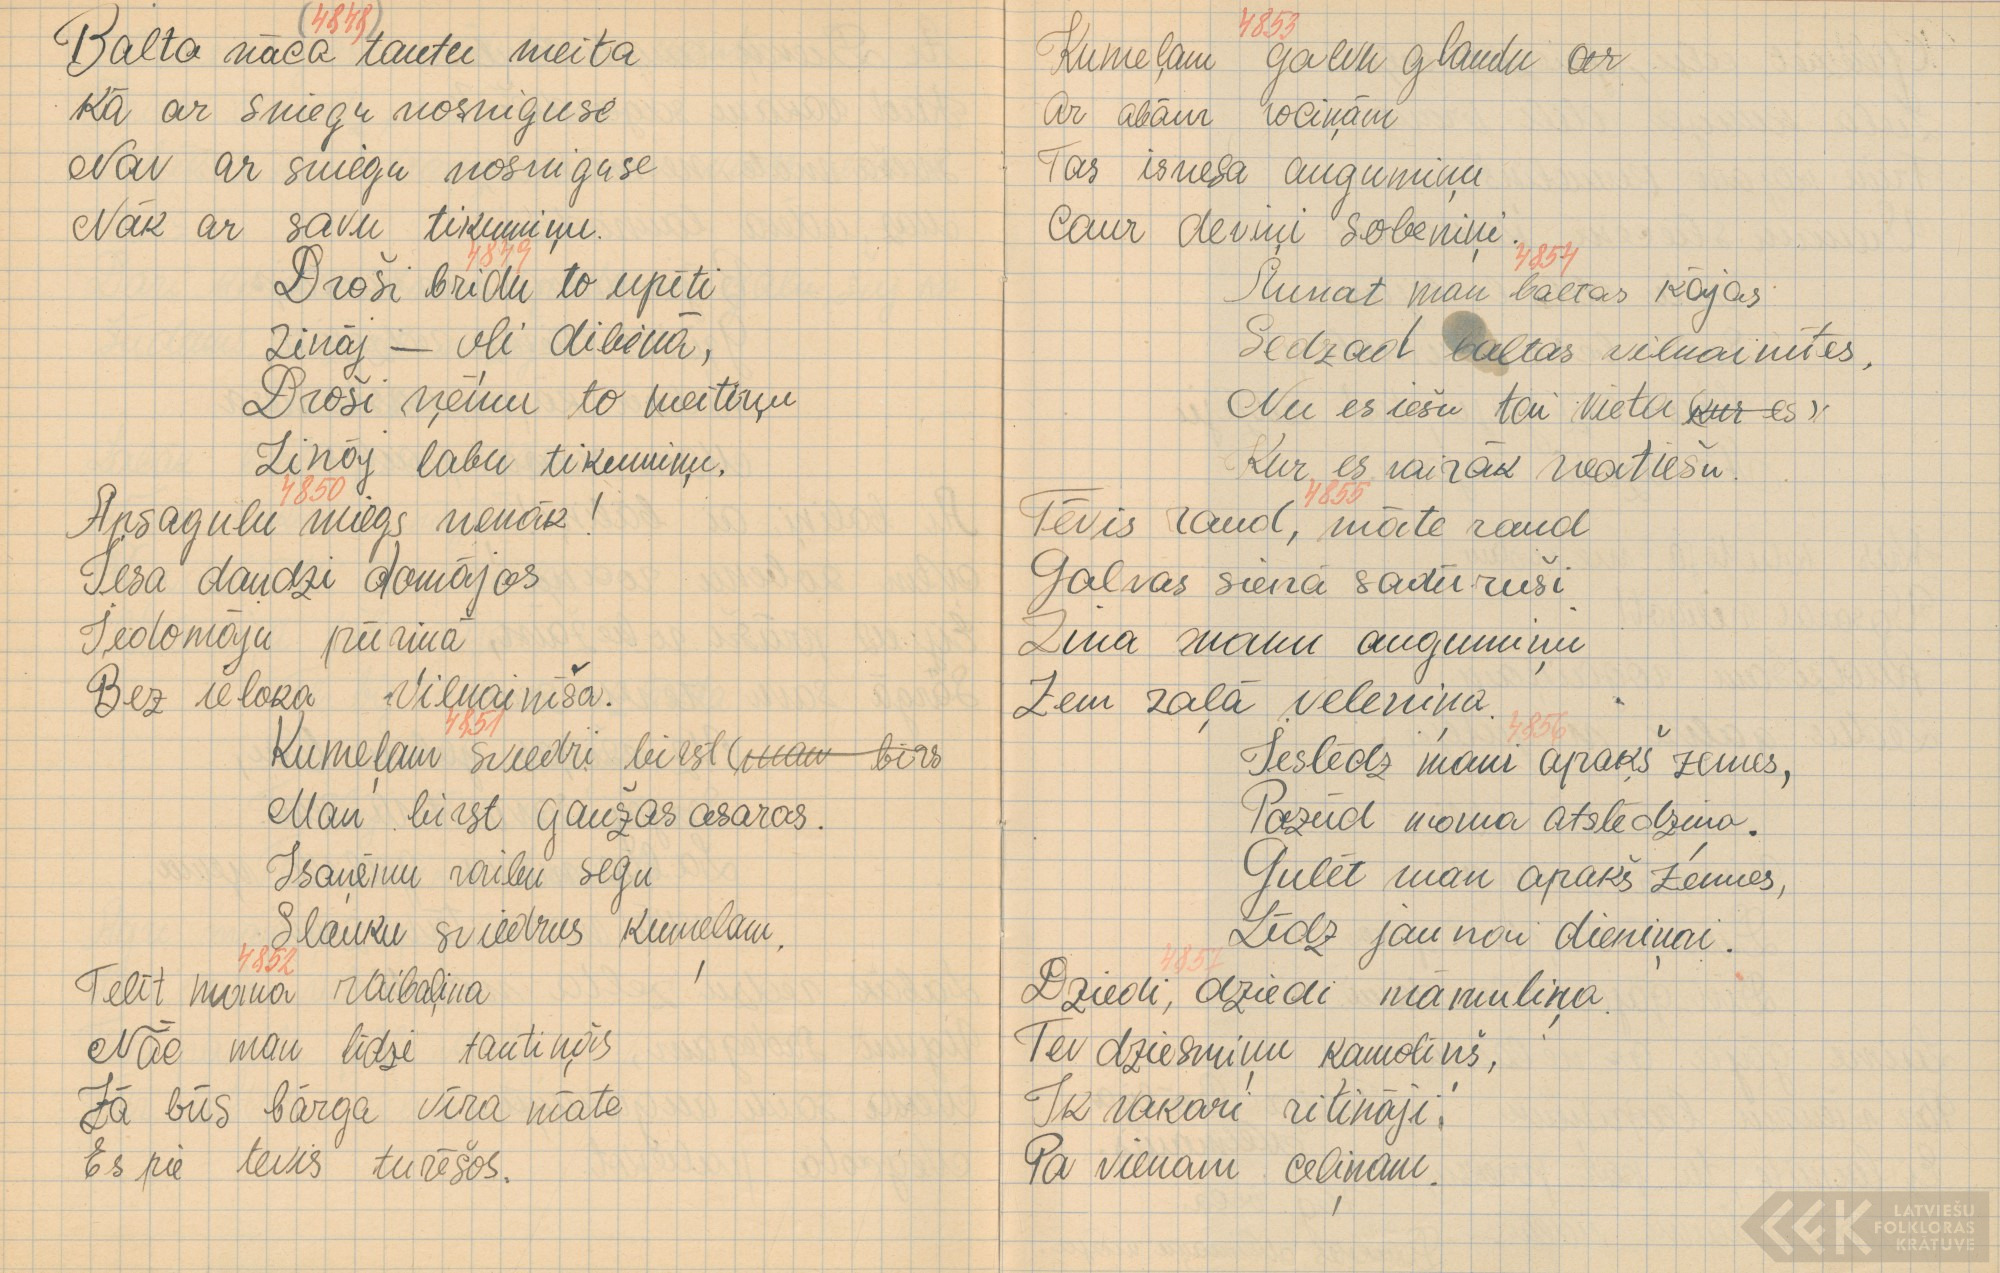 (4848)
Balta nāca tautu meita
Kā ar sniegu nosnigusē
Nav ar sniegu nosniguse
Nāk ar savu tikumiņu.
4849
Droši bridu to upēti
Zināj — oli dibenā,
Droši ņēmu to meitiņu
Zināj labu tikumiņu.
4850
Apsagulu miegs nenāk!
Iesa daudzi domājos
Iedomāju pūriņā
Bez ieloka vilnainīša.
4851
Kumeļam sviedri birst (man birs
Man birst gaužas asaras.
Isaņēmu raibu segu
Slauku sviedrus kumeļam.
4852
Telīt mana raibaļiņa
Nāc man līdzi tautiņās
Jā būs bārga vīra māte
Es pie tevis turēšos.
4853
Kumeļam galvu glaudu ar
ar abām rociņām
Tas isnesa augumiņu
Caur deviņi sobeniņi.
4854
Aunat man baltas kājas
Sedzad baltas vilnainītes,
Nu es iešu tai vieta (kur es)
Kur es vairāk neatiešu.
4855
Tēvis raud, māte raud
Galvas sienā sadūruši
Zina manu augumiņu
Zem zaļā veleniņa.
4856
Ieslēdz mani apakš zemes,
Pazūd mana atslēdziņa.
Gulēt man apakš zemes,
Līdz jaunai dieniņai.
4857
Dziedi, dziedi māmuliņa
Tev dziesmiņu kamoliņš,
Ik vakari ritināji
Pa vienam celiņam.
LATVIEŠU
FOLKLORAS
KRĀTUVE